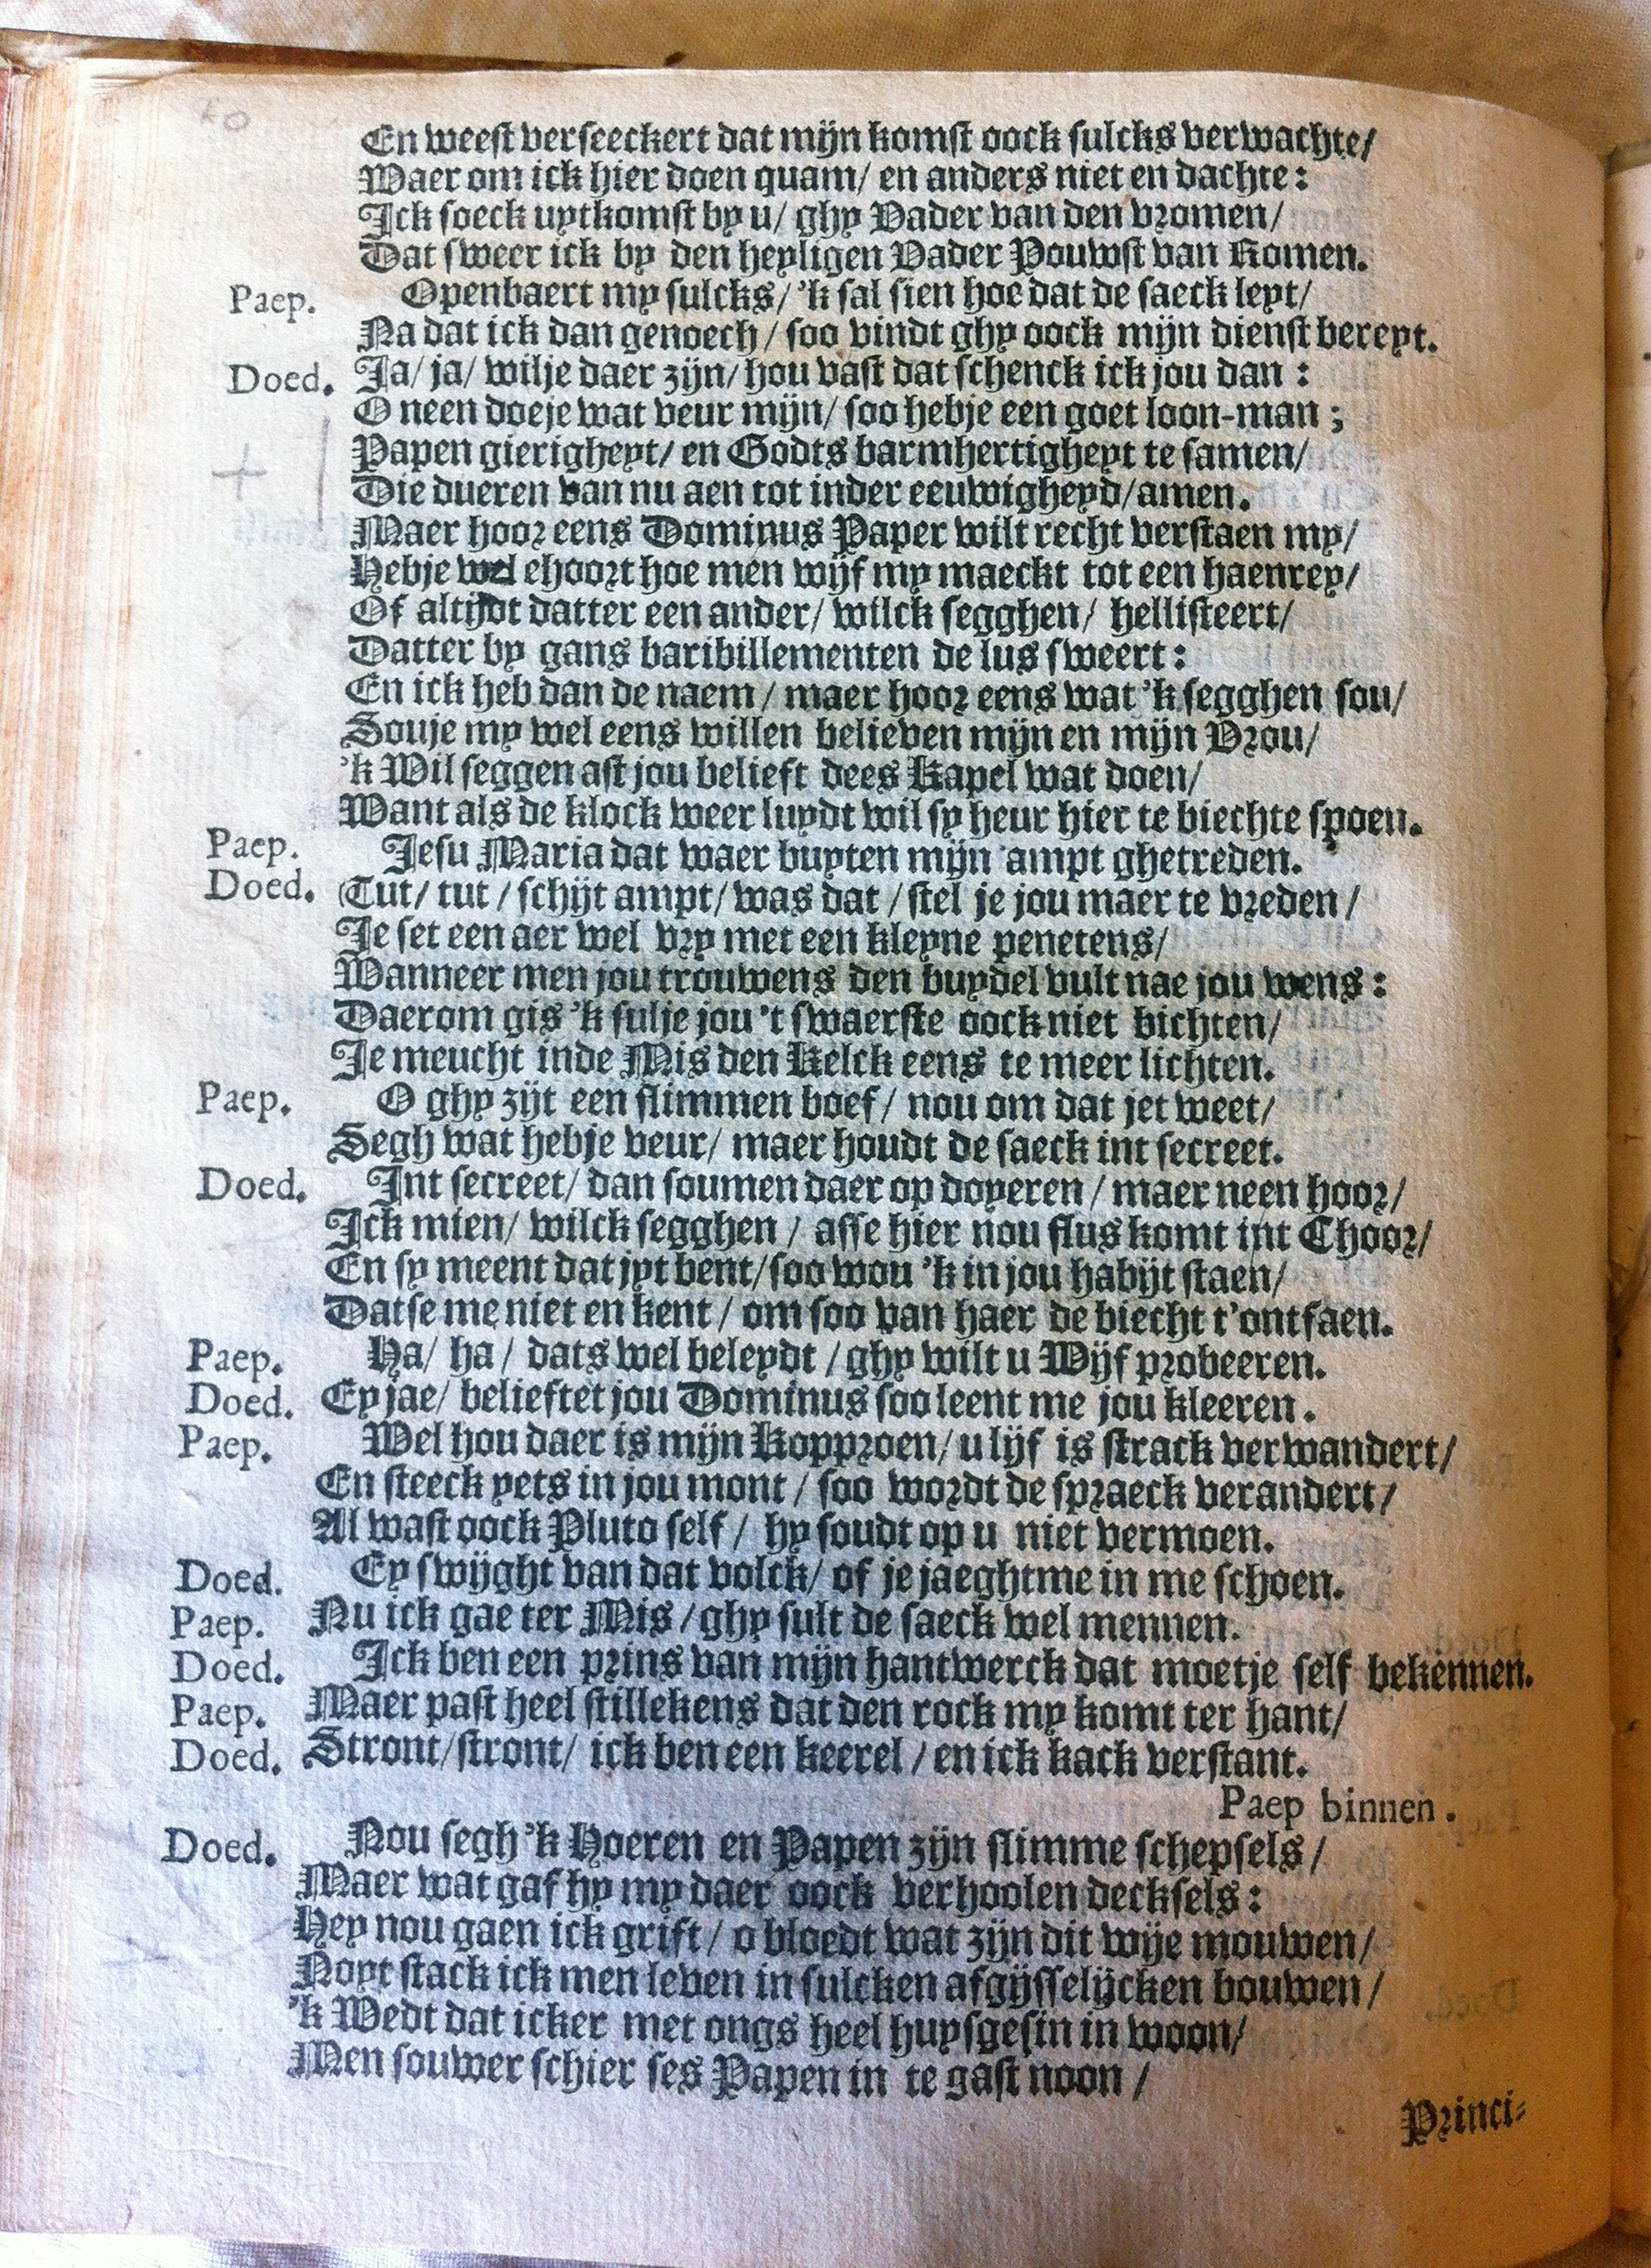 En weest verseeckert dat mijn komst oock sulcks verwachte/
Waer om ick hier doen quam/ en anders niet en dachte:
Ick soeck uytkomst by u/ ghy Vader van den vromen/
Dat sweer ick by den heyligen Vader Pouwst van Romen.
Paep. Openbaert my sulcks/ 'k sal sien hoe dat de saeck leyt/
Na dat ick dan genoech/ soo vindt ghy oock mijn dienst bereyt.
Doed. Ja/ ja/ wilje daer zijn/ hou vast dat schenck ick jou dan:
O neen doeje wat veur mijn/ soo hebje een goet loon-man;
Papen gierigheyt/ en Godts barmhertigheyt te samen/
Die dueren van nu aen tot inder eeuwigheyd/ amen.
Maer hoor eens Dominus Paper wilt recht verstaen my/
Hebje wel ehoort hoe men wijf my maeckt tot een haenrey/
Of altijdt datter een ander/ wilck segghen/ hellisteert/
Datter by gans baribillementen de lus sweert:
En ick heb dan de naem/ maer hoor eens wat 'k segghen sou/
Souje my wel eens willen believen mijn en mijn Vrou/
'k Wil seggen ast jou belieft dees Kapel wat doen/
Want als de klock weer luydt wil sy heur hier te biechte spoen.
Paep. Jesu Maria dat waer buyten mijn ampt ghetreden.
Doed. Tut/ tut/ schijt ampt/ was dat/ stel je jou maer te vreden/
Je set een aer wel vry met een kleyne penetens/
Wanneer men jou trouwens den buydel vult nae jou wens:
Daerom gis 'k sulje jou 't swaerste oock niet bichten/
Je meucht inde Mis den Kelck eens te meer lichten.
Paep. O ghy zijt een slimmen boef/ nou om dat jet weet/
Segh wat hebje veur/ maer houdt de saeck int secreet.
Doed. Int secreet/ dan soumen daer op doyeren/ maer neen hoor/
Ick mien/ wilck segghen/ asse hier nou flus komt int Choor/
En sy meent dat jyt bent/ soo wou 'k in jou habijt staen/
Datse me niet en kent/ om soo van haer de biecht t'ontfaen.
Paep. Ha/ ha/ dats wel beleydt/ ghy wilt u Wijf probeeren.
Doed. Ey jae/ belieftet jou Dominus soo leent me jou kleeren.
Paep. Wel hou daer is mijn Kopproen/ u lijf is strack verwandert/
En steeck yets in jou mont/ soo wordt de spraeck verandert/
Al wast oock Pluto self/ hy soudt op u niet vermoen.
Doed. Ey swijght van dat volck/ of je jaeghtme in me schoen.
Paep. Nu ick gae ter Mis/ ghy sult de saeck wel mennen.
Doed. Ick ben een prins van mijn hantwerck dat moetje self bekennen.
Paep. Maer past heel stillekens dat den rock my komt ter hant/
Doed. Stront/ stront/ ick ben een keerel/ en ick kack verstant.
Paep binnen.
Doed. Nou segh 'k Hoeren en Papen zijn slimme schepsels/
Maer wat gaf hy my daer oock verhoolen decksels:
Hey nou gaen ick grift/ o bloedt wat zijn dit wije mouwen/
Noyt stack ick men leven in sulcken afgijsselijcken bouwen/
'k Wedt dat icker met ongs heel huysgesin in woon/
Men souwer schier ses Papen in te gast noon/
Princi-